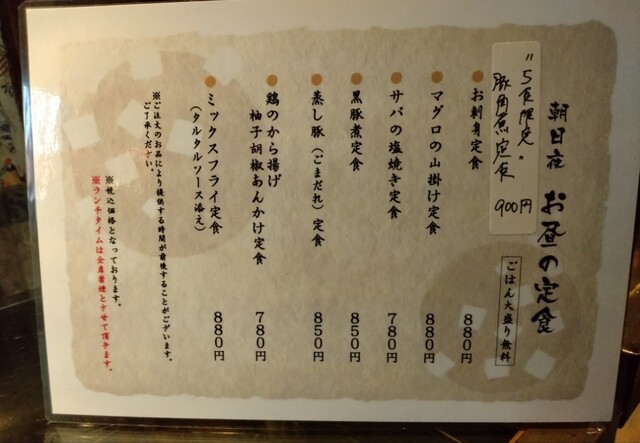 朝日在 お昼の定食
ごはん大盛り無料
"5食限定"
豚角煮定食 900円
お刺身定食 880円
マグロの山掛け定食 880円
サバの塩焼き定食 780円
黒豚煮定食 850円
蒸し豚（ごまだれ）定食 850円
鶏のから揚げ
柚子胡椒あんかけ定食 780円
ミックスフライ定食
（タルタルソース添え） 880円
※ご注文のお品により提供する時間が前後することがございます。
ご了承ください。
※税込価格となっております。
※ランチタイムは全席禁煙とさせて頂きます。